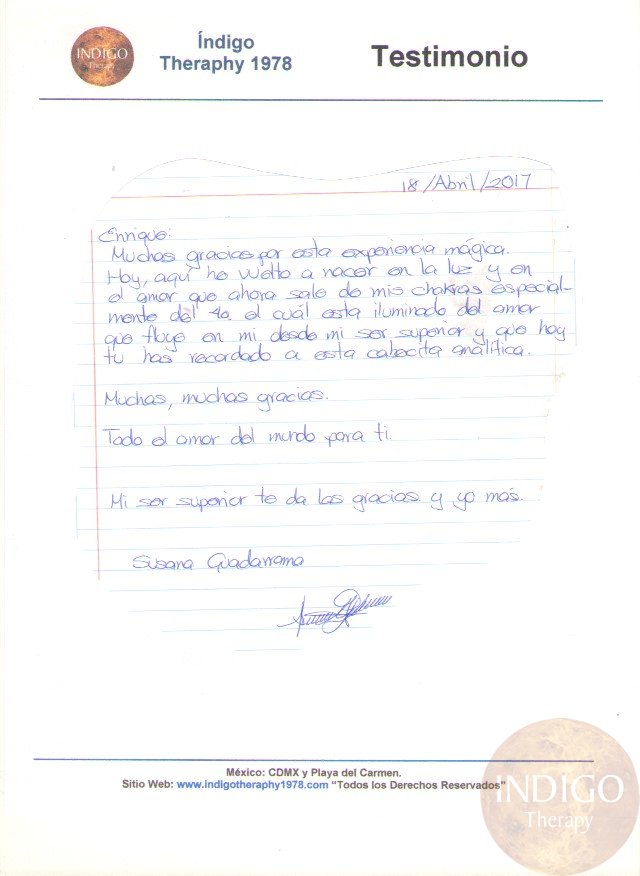 INDIGO
Therapy
Índigo
Theraphy 1978
Testimonio
18/Abril/2017
Enrique:
Muchas gracias por esta experiencia mágica.
Hoy, aquí he vuelto a nacer en la luz y en
el amor que ahora sale de mis chakras especial-
mente del 4o. el cuál esta iluminado del amor
que fluye en mi desde mi ser superior y que hoy
tu has recordado a esta cabecita analítica.
Muchas, muchas gracias.
Todo el amor del mundo para ti.
Mi ser superior te da las gracias y yo más.
Susana Guadarrama
México: CDMX y Playa del Carmen.
Sitio Web: www.indigotheraphy1978.com “Todos los Derechos Reservados”
INDIGO
Therapy